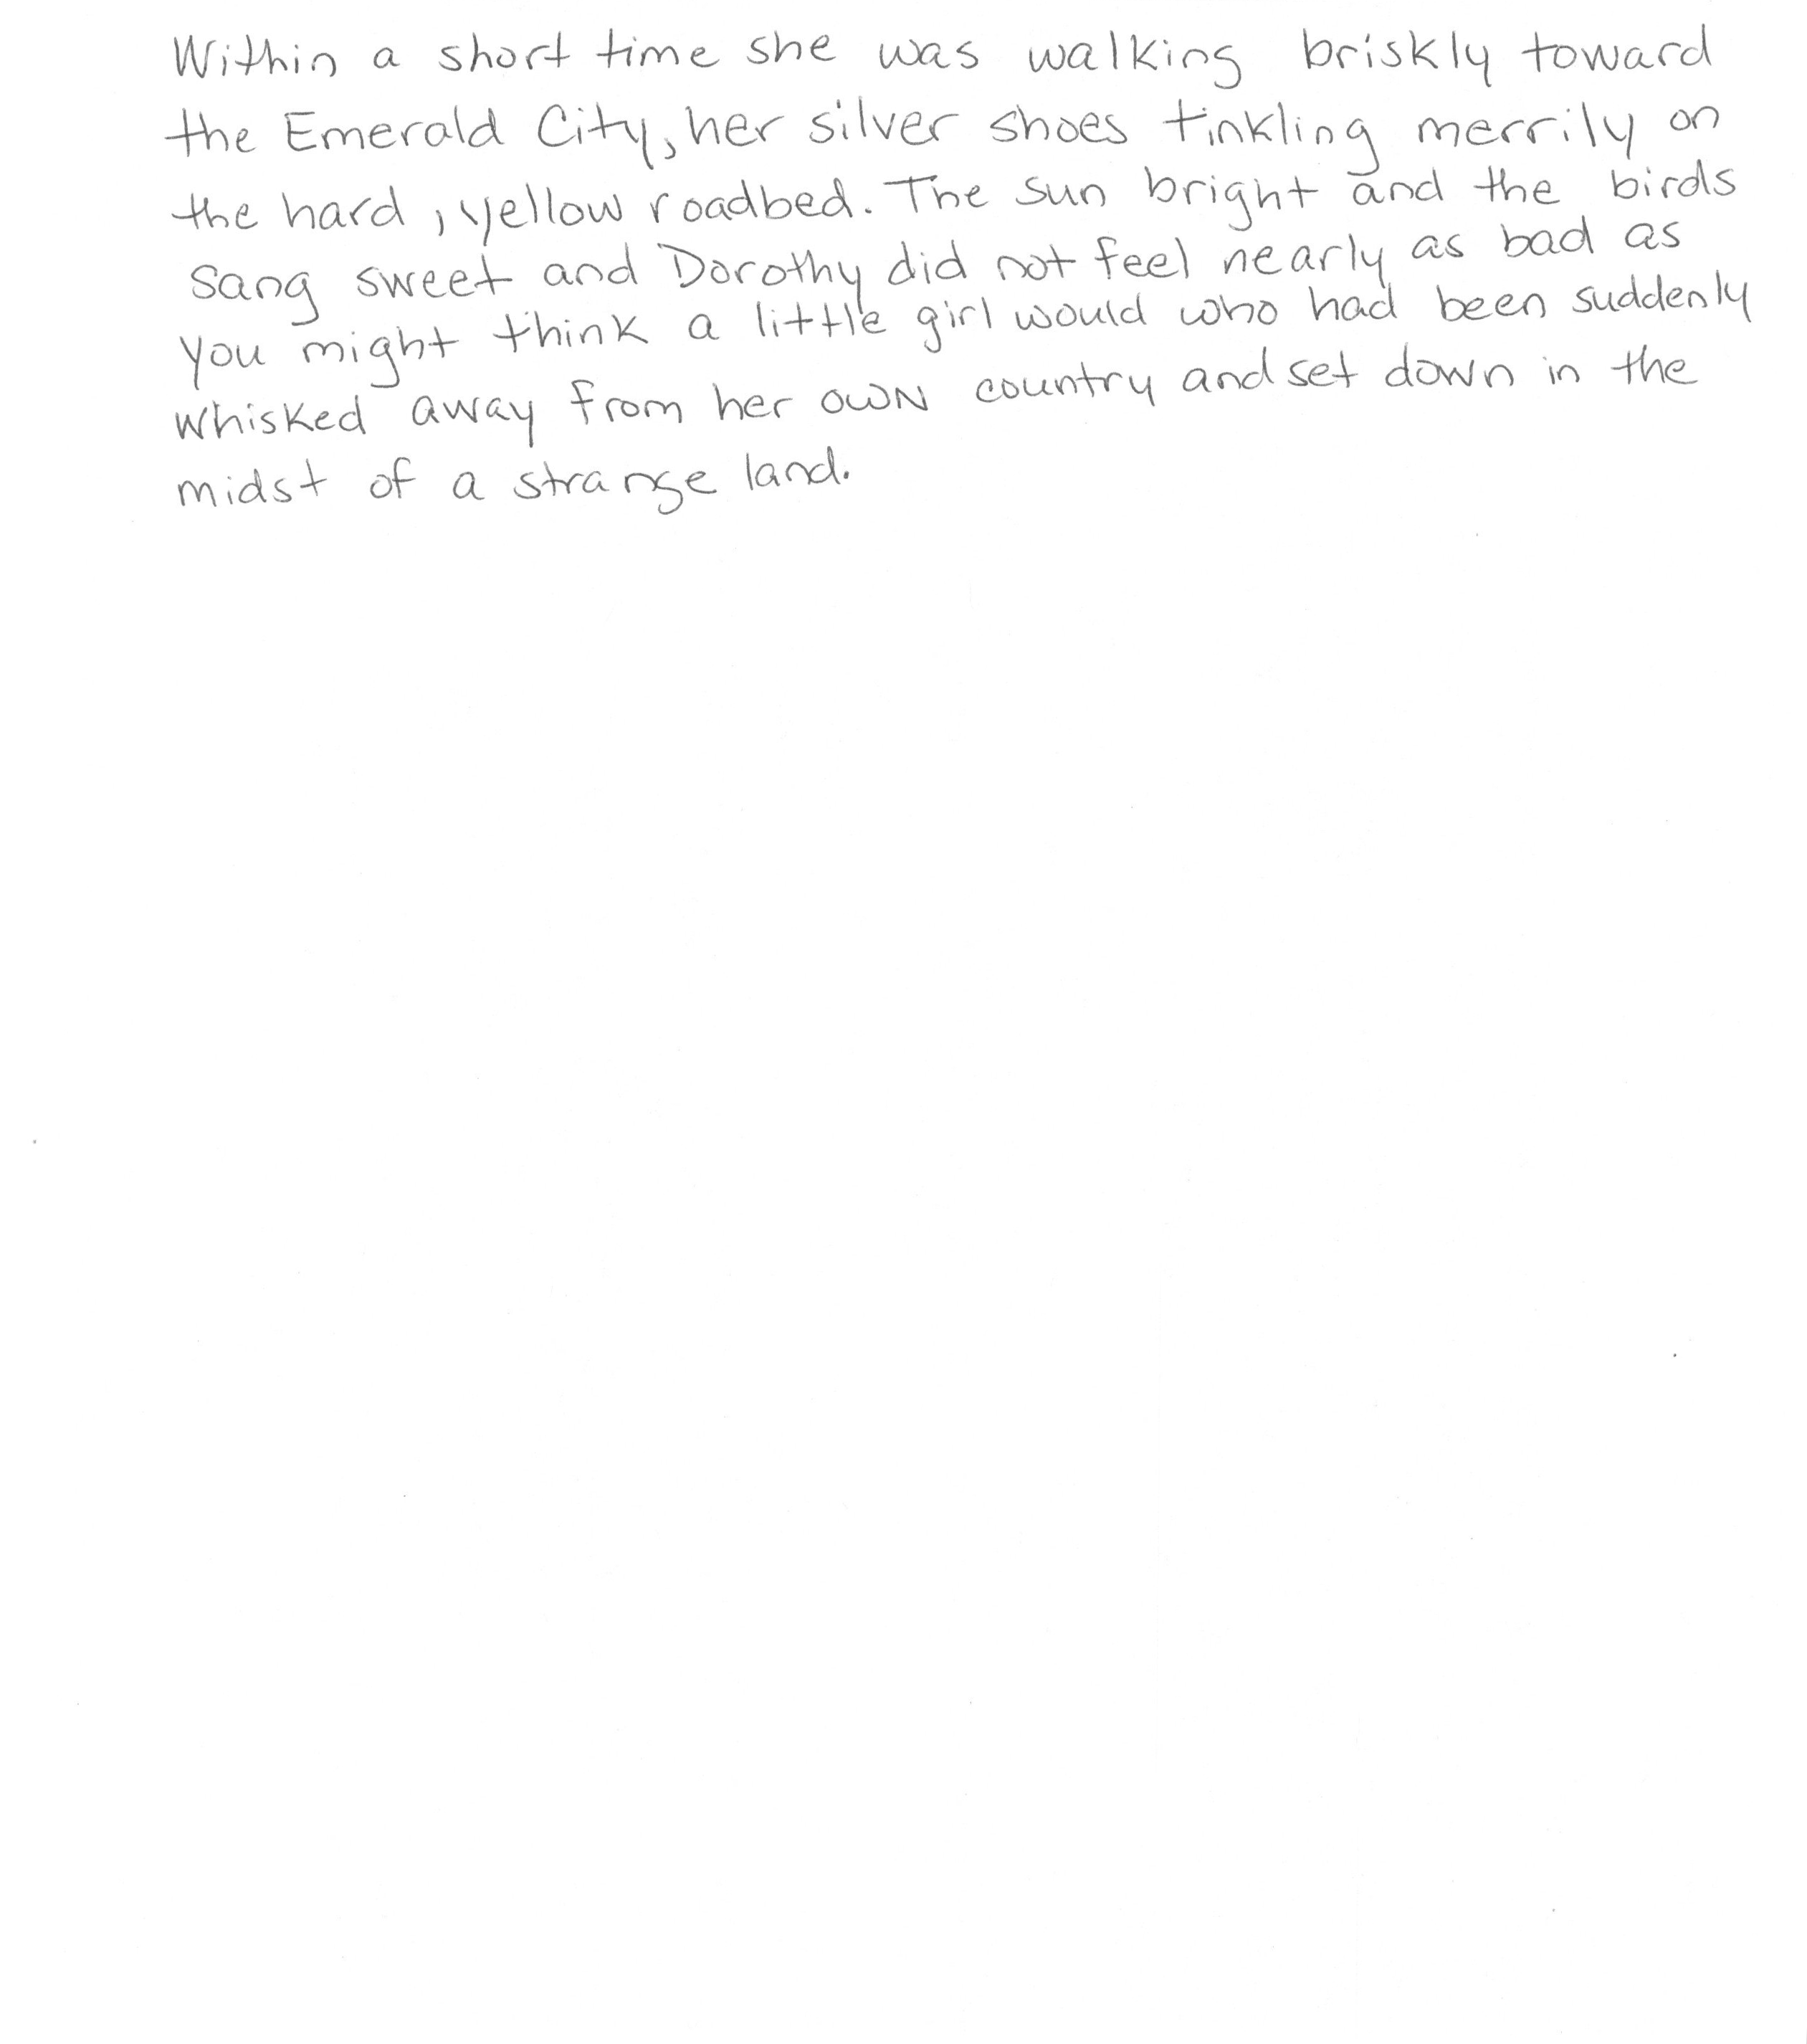 Within a short time she was walking briskly toward
the Emerald City, her silver shoes tinkling merrily on
the hard, yellow roadbed. The sun bright and the birds
sang sweet and Dorothy did not feel nearly as bad as
you might think a little girl would who had been suddenly
whisked away from her own country and set down in the
midst of a strange land.